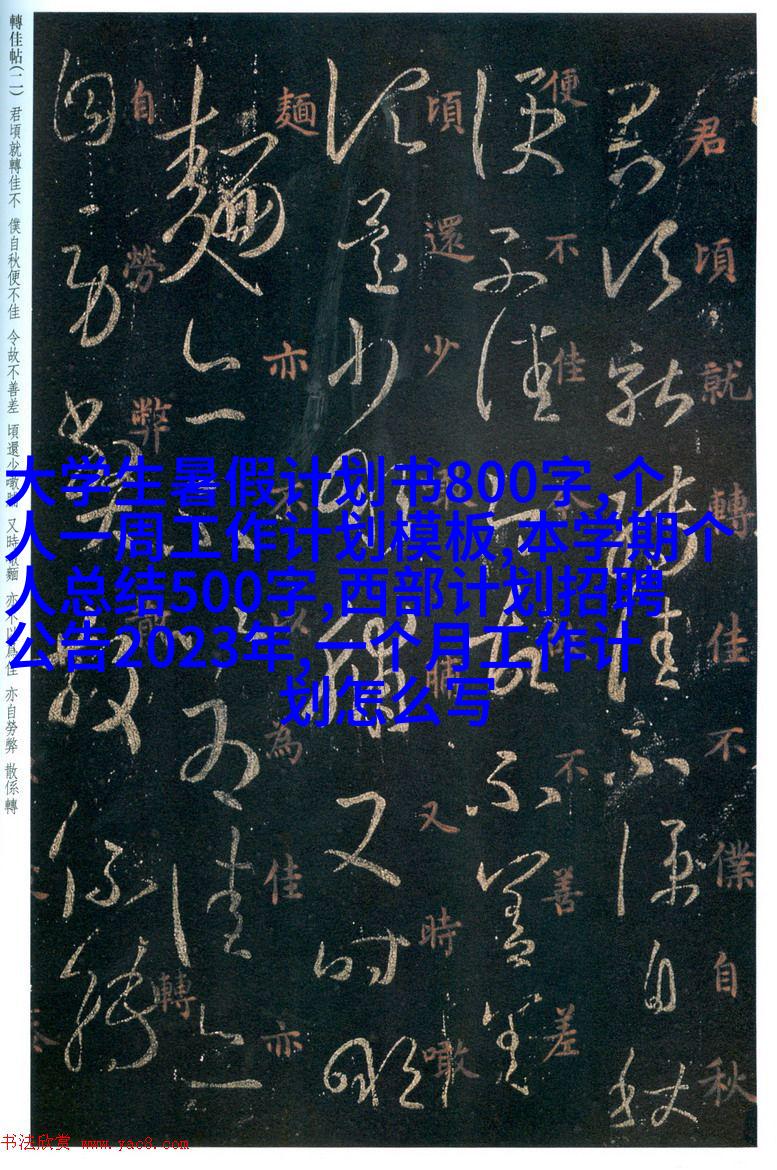 轉佳帖(二) 君頃就轉佳不 僕自秋便不佳 令故不善差 頃還少噉脯 又時噉麵 亦不以爲佳 亦自勞弊 散係轉
君頃就轉佳不僕自秋
便不佳令故不善差
頃還少噉脯又時噉
麵亦不以為佳亦
自勞弊散係轉
大学生暑假计划书800字,个
人一周工作计划模板,本学期个
人总结500字,西部计划招聘
公告2023年,一个月工作计
划怎么写
书法欣赏 www.yac8.com